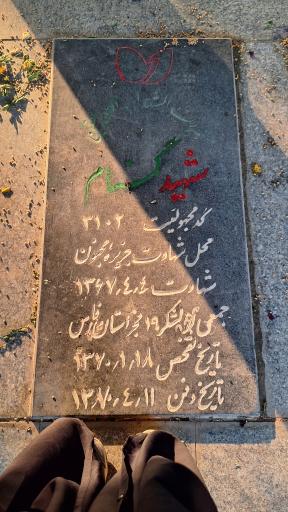 شهید گمنام
کد مجهولیت ۳۱۰۲
محل شهادت جزیره مجنون
شهادت ۱۳۶۷٫۴٫۴
جمعی لشکر ۱۹ فجر استان فارس
تاریخ تفحص ۱۳۷۰٫۱٫۱۸
تاریخ دفن ۱۳۸۰٫۴٫۱۱